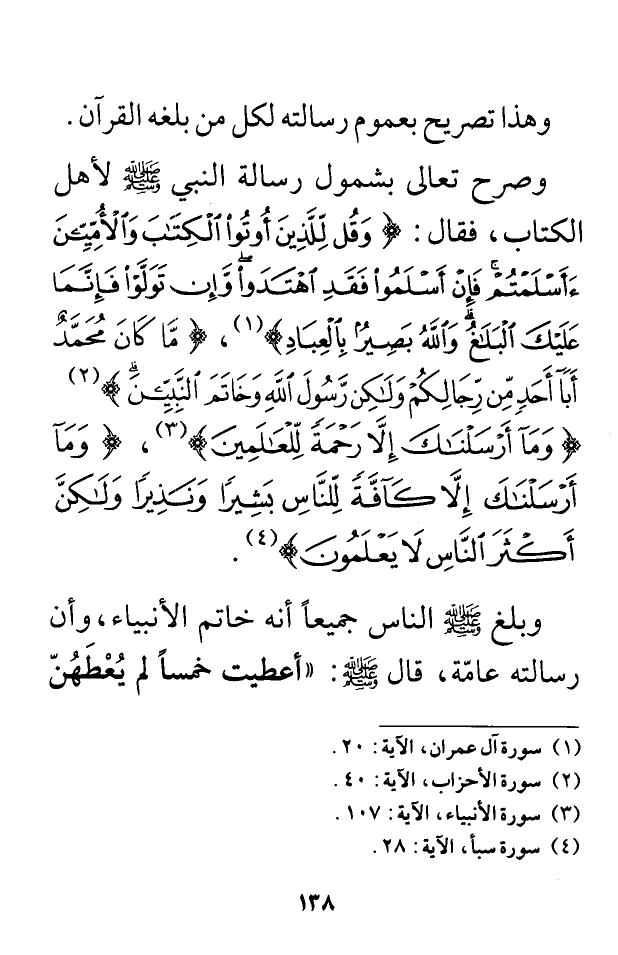 وهذا تصريح بعموم رسالته لكل من بلغه القرآن .
وصرح تعالى بشمول رسالة النبي ﷺ لأهل
الكتاب، فقال : ﴿ وَقُل لِّلَّذِينَ أُوتُوا۟ ٱلْكِتَٰبَ وَٱلْأُمِّيِّـۧنَ
ءَأَسْلَمْتُمْ ۚ فَإِنْ أَسْلَمُوا۟ فَقَدِ ٱهْتَدَوا۟ ۖ وَّإِن تَوَلَّوْا۟ فَإِنَّمَا
عَلَيْكَ ٱلْبَلَٰغُ ۗ وَٱللَّهُ بَصِيرٌۢ بِٱلْعِبَادِ﴾(١) ، ﴿ مَّا كَانَ مُحَمَّدٌ
أَبَآ أَحَدٍ مِّن رِّجَالِكُمْ وَلَٰكِن رَّسُولَ ٱللَّهِ وَخَاتَمَ ٱلنَّبِيِّـۧنَ ۗ ﴾(٢)
﴿ وَمَآ أَرْسَلْنَٰكَ إِلَّا رَحْمَةً لِّلْعَٰلَمِينَ﴾(٣) ، ﴿ وَمَآ
أَرْسَلْنَٰكَ إِلَّا كَآفَّةً لِّلنَّاسِ بَشِيرًا وَنَذِيرًا وَلَٰكِنَّ
أَكْثَرَ ٱلنَّاسِ لَا يَعْلَمُونَ﴾(٤) .
وبلغ ﷺ الناس جميعاً أنه خاتم الأنبياء، وأن
رسالته عامّة، قال ﷺ : «أعطيت خمساً لم يُعْطَهُنّ
(١) سورة آل عمران، الآية : ٢٠ .
(٢) سورة الأحزاب، الآية : ٤٠ .
(٣) سورة الأنبياء، الآية : ١٠٧ .
(٤) سورة سبأ، الآية : ٢٨ .
١٣٨